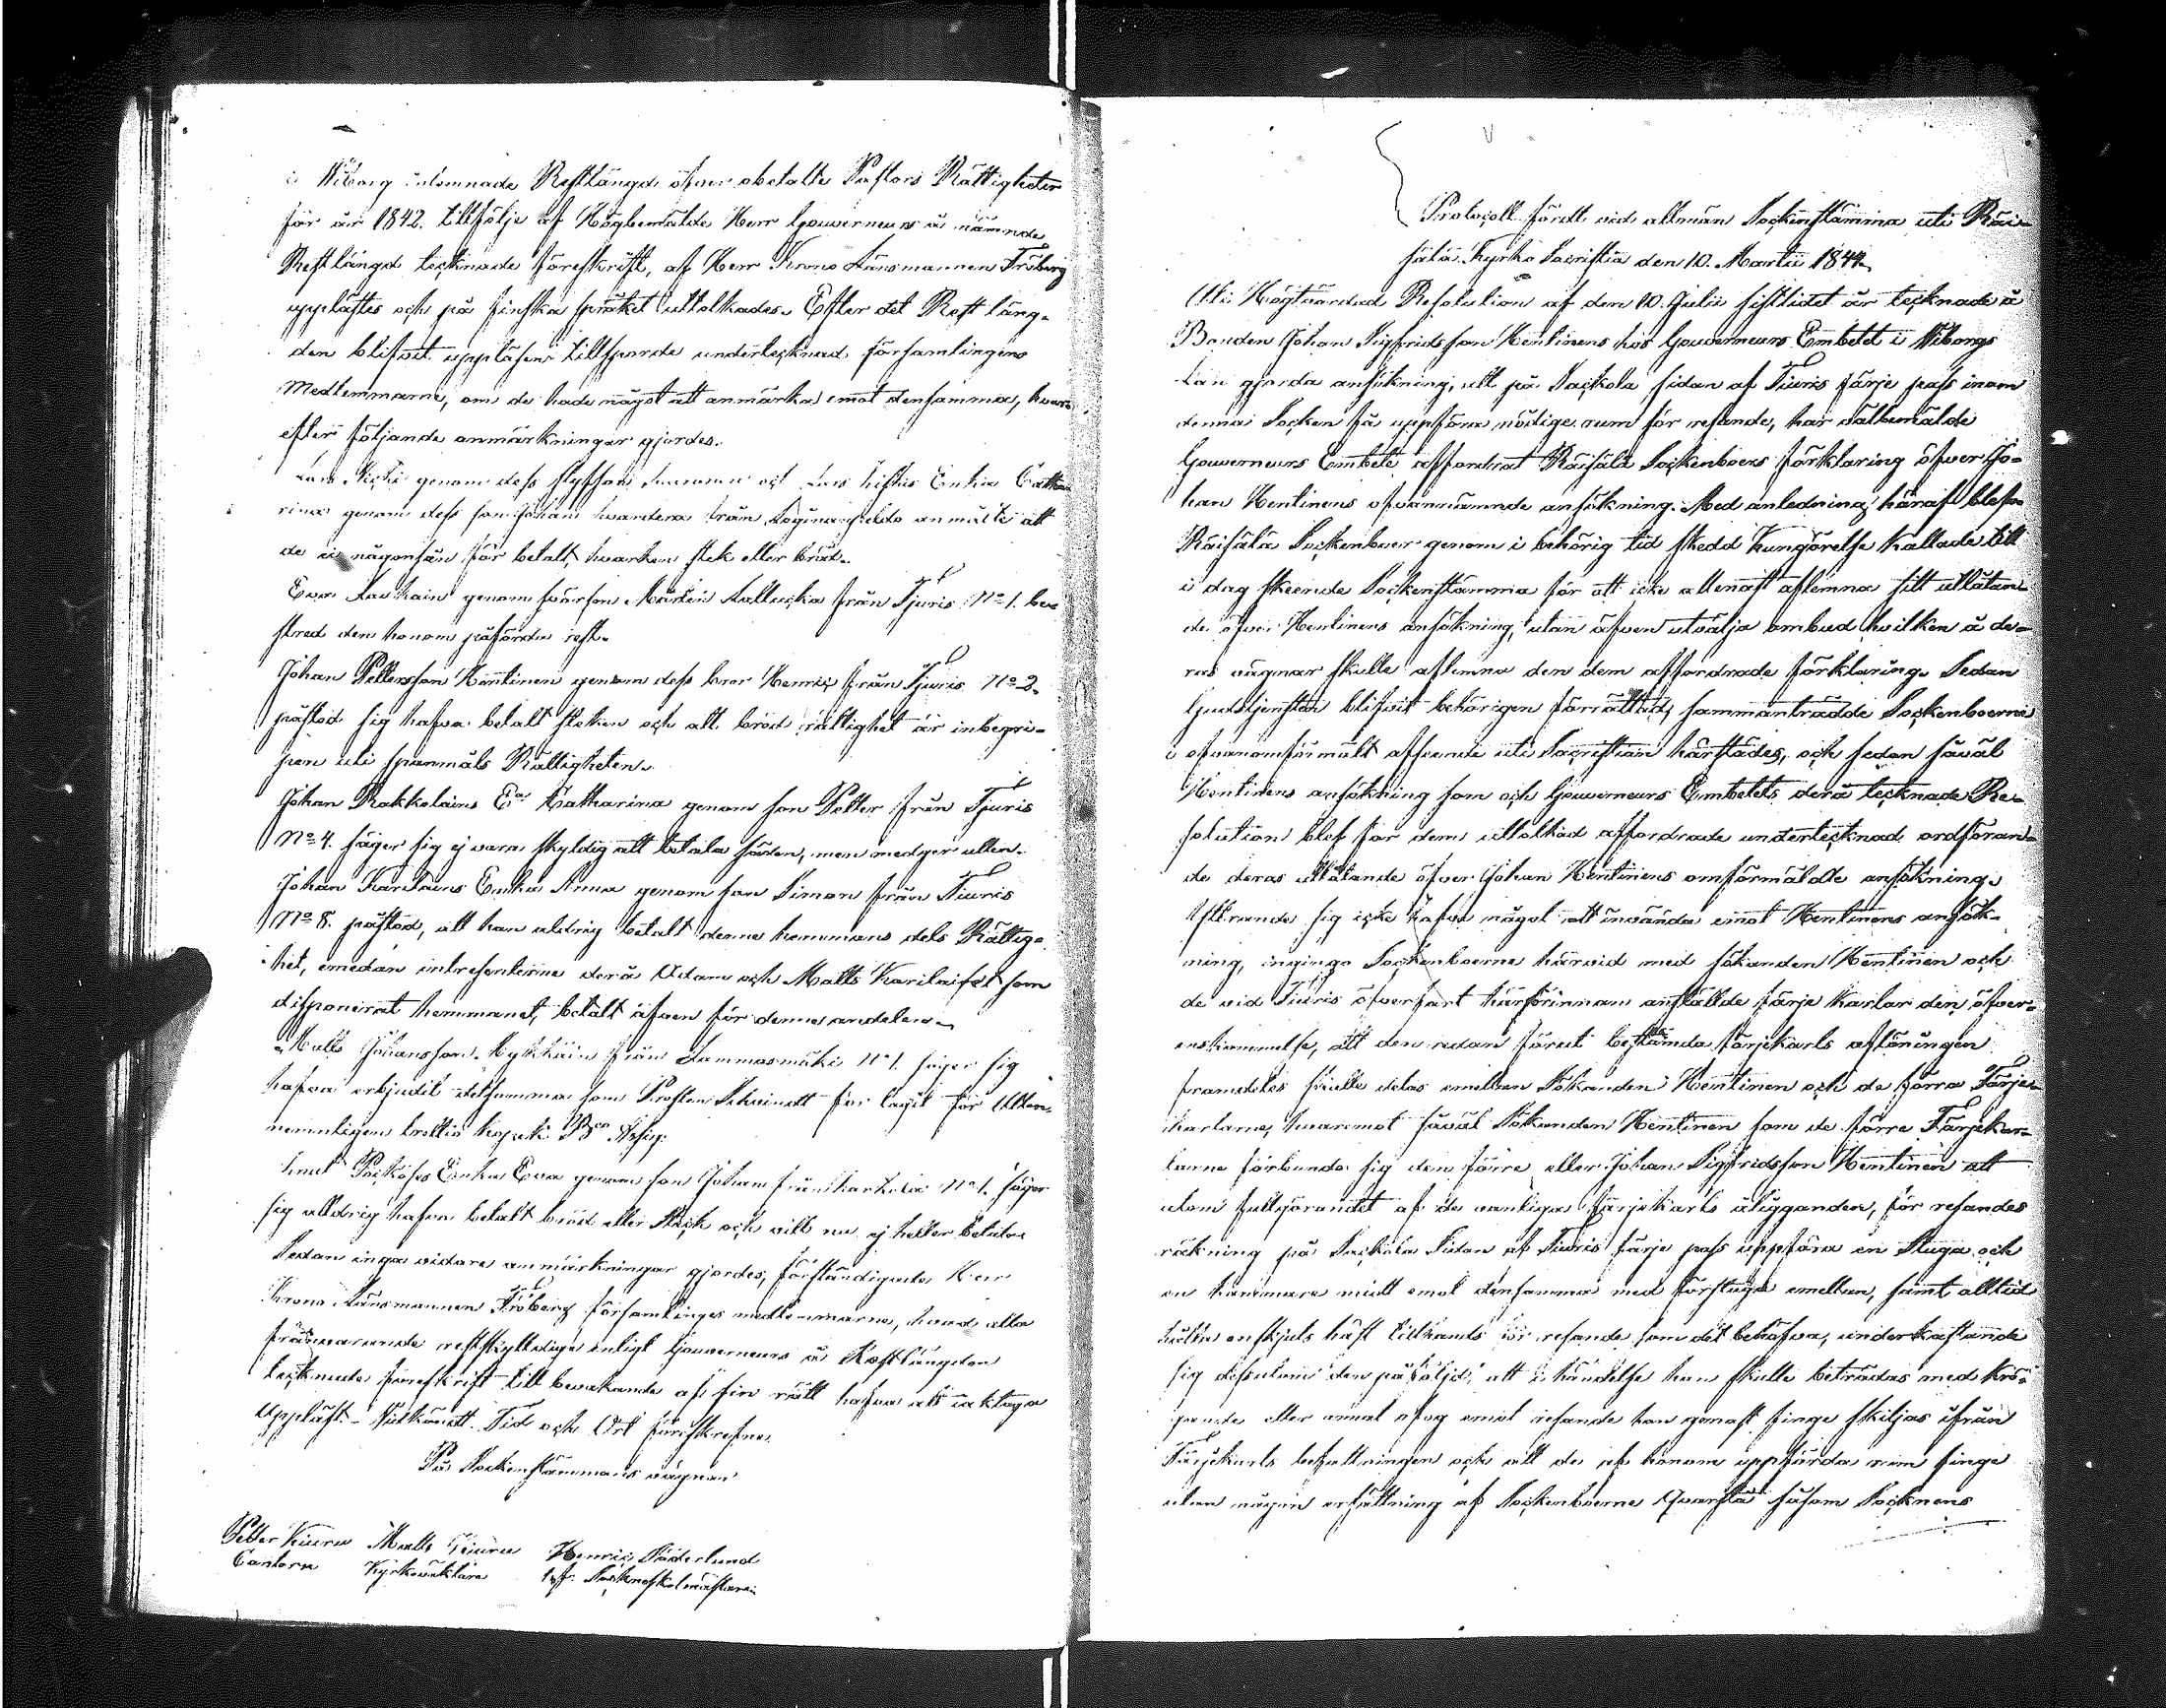 i Wiborg inlemnade Restlängd öfver obetalte Pastors Rättigheter
för år 1842. tillfölje af Högbemälde Herr Gouverneurs å nämnde
Restlängd tecknade föreskrift, af Herr Krono Länsmannen Fröberg
upplästes och på finska språket uttolkades. Efter det Rest läng-
den blifvit uppläsen tillsporde undertecknad församlingens
Medlemmarne, om de hade något att anmärka emot densamma, hvar-
efter följande anmärkningar gjordes.
genom dess och Lars Enka Catha-
rina genom dess son Johan från anmälte att
de ej någonsin för betalt, hvarken stek eller bröd.
Eva genom svärson Martin från Tjuris No 1. be-
stred den honom påförda rest.
Johan Pettersson Hentinen genom dess bror Henric från Tjuris No 2.
påstod sig hafva betalt steken och att bröd rättighet är inbegri-
pen uti spanmåls Rättigheten.
Johan Pukkolains Eka Katharina genom son Petter från Tjuris
No 4. säger sig ej vara skyldig att betala säden, men medger ullen.
Johan Karilains Enka Anna genom son Simon från Tiuris
No 8. påstod, att han aldrig betalt denne hemmans dels Rättig-
het, emedan intressenterne derå Adam och Matts Karilaiset som
disponerat hemmanet, betalt äfven för denne andelen.
Matts Johansson Kykkäin från Lammasmäki No 1. säger sig
hafva erbjudit detsamma som Prosten för Ullen,
nemnligen trettio kopek Bco Assig.
Enka Eva genom son Johan från No 1. säger
sig alldrig hafva betalt bröd eller stek och vill nu ej heller betala.
Sedan inga vidare anmärkningar gjordes, förständigade Herr
Krono Länsmannen Fröberg församlinges medlemmarne, hvad alla
närvarande restskyldige enligt Gouverneurs å Restlängden
tecknade föreskrift till bevakande af sin rätt hafva att iakttaga
Uppläst. Tid och Ort förutskrefne.
På Sockenstämmans vägnar
Petter Kiuru Matts Kiuru Henric Söderlund
Cantor Kyrkoväktare Sockneskolmästare
Protocoll fördt vid allmän Sockenstämma uti Räi-
sälä Kyrko Sacristia den 10. Martii 1844.
Uti Högtvördad Resolution af den 10. Julii sistlidet år tecknade å
Bonden Johan Sigfridsson Hentinens hos Gouverneurs Embetet i Wiborgs
Län gjorda ansökning, att på Sackola sidan af Tiuris färje pass inom
denna Socken få uppföra nödige rum för resande, har välbemälde
Gouverneurs Embete affordrat Räisälä Sockenboers förklaring öfver Jo-
han Hentinens ofvannämnde ansökning. Med anledning häraf blefvo
Räisälä Sockenboer genom i behörig tid skedd kungörelse kallade till
i dag skeende Sockenstämma för att icke allenast aflemna sitt utlåtan-
de öfver Hentinens ansökning, utan äfven utvälja ombud hvilken å de-
ras vägnar skulle aflemna den dem affordrade förklaring. Sedan
Gudstjensten blifvit behörigen förrättad, sammanträdde Sockenboerne
i ofvanomförmält afseende uti Sacristian härstädes, och sedan såväl
Hentinens ansökning som och Gouverneurs Embetets derå tecknade Re-
solution blef för dem uttolkad affordrade undertecknad ordföran-
de deras utlåtande öfver Johan Hentinens omförmäldte ansökning.
Yttrande sig icke hafva något att invända emot Hentinens ansök-
ning, inginge Sockenboerne härvid med sökanden Hentinen och
de vid Tiuris öfverfart härförinnan anställde färje karlar den öfver-
enskommelse, att den redan förut bestämda färjekarls aflöningen
framdeles skulle delas emellan Sökanden Hentinen och de förra Färje-
karlarne, hvaremot såväl Sökanden Hentinen som de förre Färjekar-
larne förbundo sig den förre eller Johan Sigfridsson Hentinen att
utom fullgörandet af de vanliga färjekarls åligganden, för resandes
räkning på Sackola Sidan af Tiuris färje pass uppföra en Stuga och
en kammare midt emot densamma med förstuga emellan, samt alltid
hålla en skjuts häst tillhands för resande som det behöfva, underkastande
sig dessutom den påföljd, att i händelse han skulle beträdas med krö-
gande eller annat ofog emot resande han genast finge skiljas ifrån
Färjekarls befattningen och att de af honom uppförda rum finge
utan någon ersättning af Sockenboerne qvarstå såsom Socknens